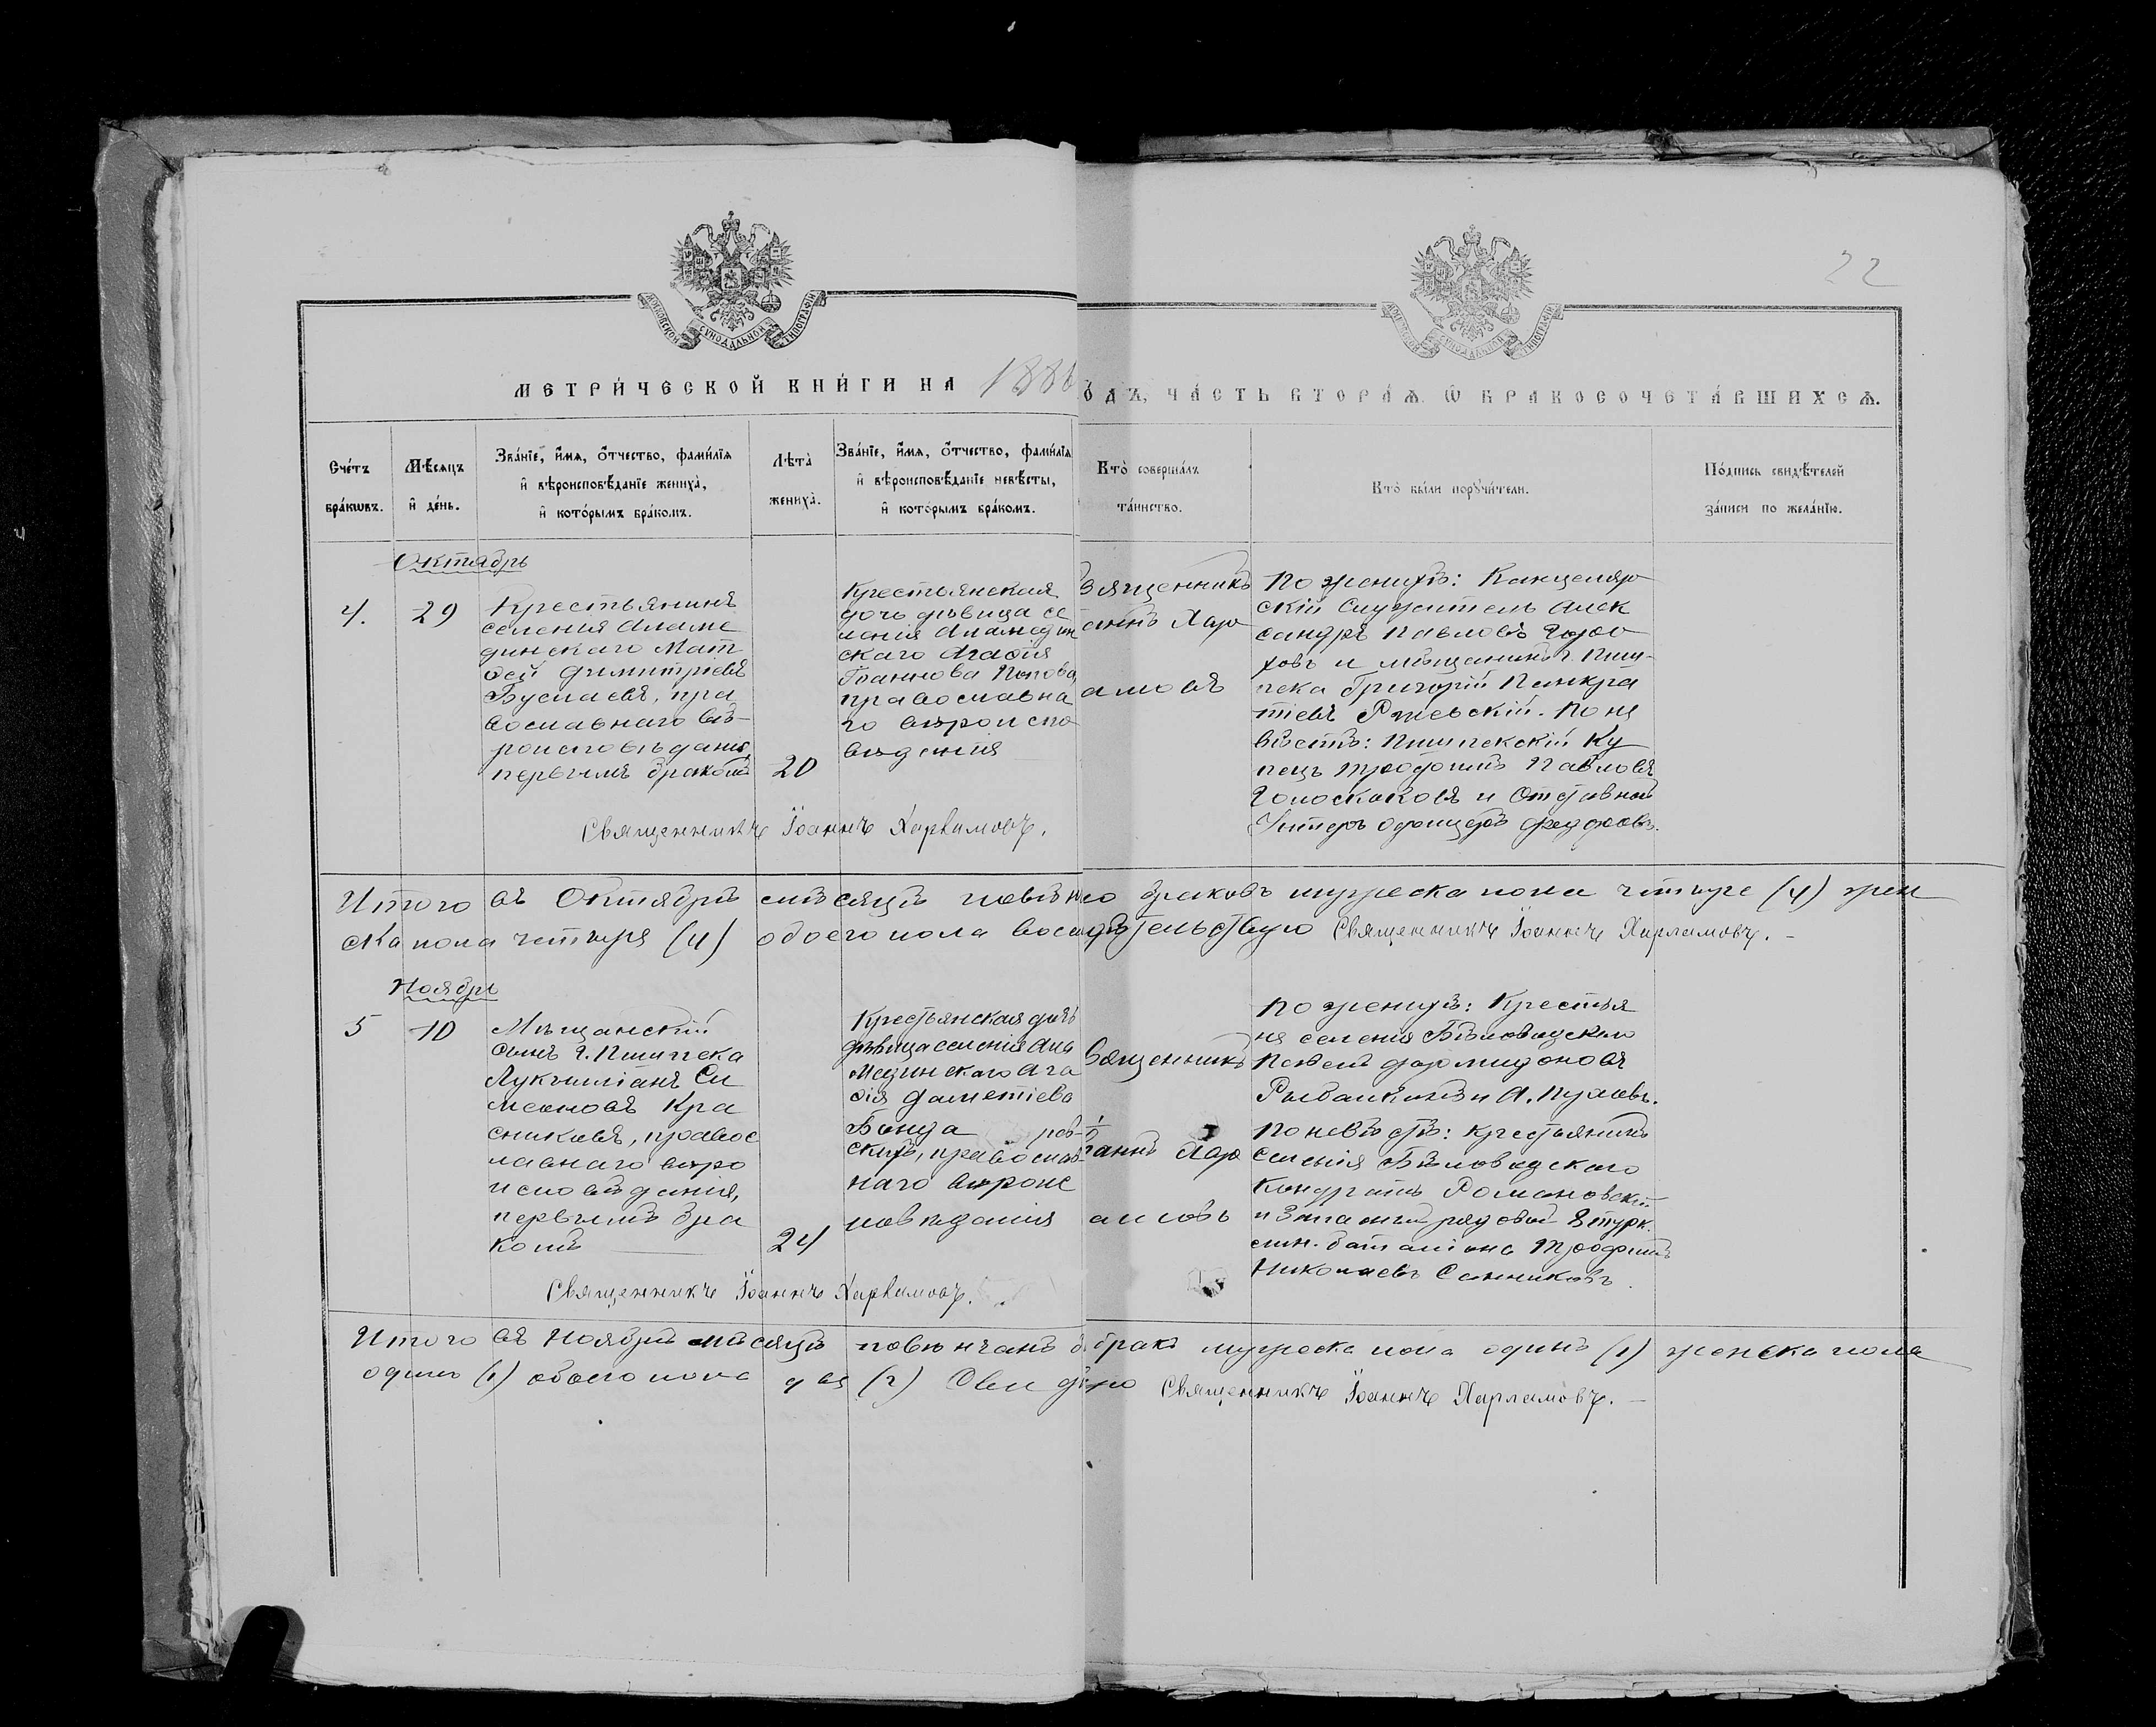 22
МОСКОВСКОЙ СУНОДАЛЬНОЙ ТИПОГРАФІИ
МОСКОВСКОЙ СУНОДАЛЬНОЙ ТИПОГРАФІИ
МЕТРИ́ЧЕСКОЙ КНИ́ГИ НА 1886
ОДЪ, ЧА́СТЬ ВТОРА́Ѧ. Ѽ БРАКОСОЧЕТА́ВШИХСѦ.
Сче́тъ
бра́кωвъ.
Мѣ́сѧцъ
и҆ де́нь.
Зва́нїе, и҆́мѧ, ѻ҆́тчество, фами́лїѧ
и҆ вѣроисповѣ́данїе жениха̀,
и҆ кото́рымъ бра́комъ.
Лѣта̀
жениха̀.
Зва́нїе, и҆́мѧ, ѻ҆́тчество, фами́лїѧ
и҆ вѣроисповѣ́данїе невѣ́сты,
и҆ кото́рымъ бра́комъ.
Кто̀ соверша́лъ
та́инство.
Кто̀ бы́ли порꙋчи́тели.
По́дпись свидѣ́телей
за́писи по жела́нїю.
Октябрь
4.
29
Крестьянинъ
селенія Аламе
динскаго Мат
ѳей Димитріевъ
Буслаевъ, пра
вославнаго вѣ-
роисповѣданія,
первымъ бракомъ
20
Крестьянская
дочь дѣвица се
ленія Аламедин
скаго Агафія
Іоаннова Попова,
православна
го вѣроиспо
вѣданія
Священникъ
аннъ Хар
амовъ
По женихѣ: Канцеляр
скій служитель Алек
сандръ Павловъ
ховъ и мѣщанинъ г. Пиш-
пека Григорій Панкра
тіевъ Ржевскій. По не
вѣстѣ: Пишпекскій Ку
пецъ Трофимъ Павловъ
Голоскоковъ и Отставной
Унтеръ офицеръ Федоровъ.
Священникъ Іоаннъ Харламовъ.
Итого въ Октябрѣ мѣсяцѣ повѣн о браковъ мужеска пола четыре (4) жен
ска пола четыре (4) обоего пола восе дѣтельствую Священникъ Іоаннъ Харламовъ. -
Ноябрь
5
10
Мѣщанскій
сынъ г. Пишпека
Лукилліанъ Си
меоновъ Кра
сниковъ, правос
лавнаго вѣро
исповѣданія,
первымъ бра
комъ
24
Крестьянская дочь
дѣвица селенія Ала
мединскаго Ага
фія Дометіева
Бонда ров-
скихъ, православ-
наго вѣроис
повѣданія
Священникъ
аннъ Хар
амовъ
По женихѣ: Крестья
не селенія Бѣловодскаго
Павелъ Фармидоновъ
Рыбалкинъ и А. Пуховъ.
По невѣстѣ: крестьянинъ
селенія Бѣловодскаго
Кондратъ Романовскій
и Запасной рядовой 8 турк.
лин. баталіона Трофимъ
Николаевъ Санниковъ.
Священникъ Іоаннъ Харламовъ.
Итого въ Ноябрѣ мѣсяцѣ повѣнчанъ бракъ мужеска пола одинъ (1) женска пола
одинъ (1) обоего пола два (2) Священникъ Іоаннъ Харламовъ. -